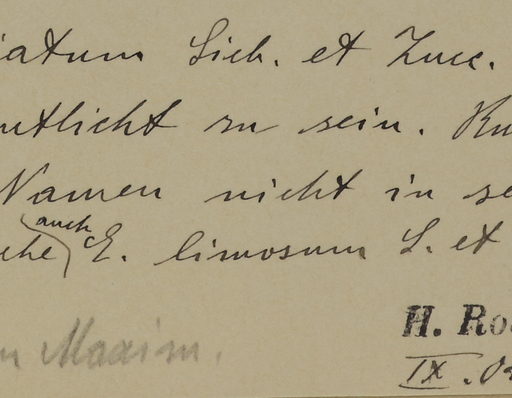 iatum Sieb. et Zucc.
ntlicht zu sein. Ru
Namen nicht in se
auch
ehe E. limosum L. et
n Maxim.
H. Ro
IX.